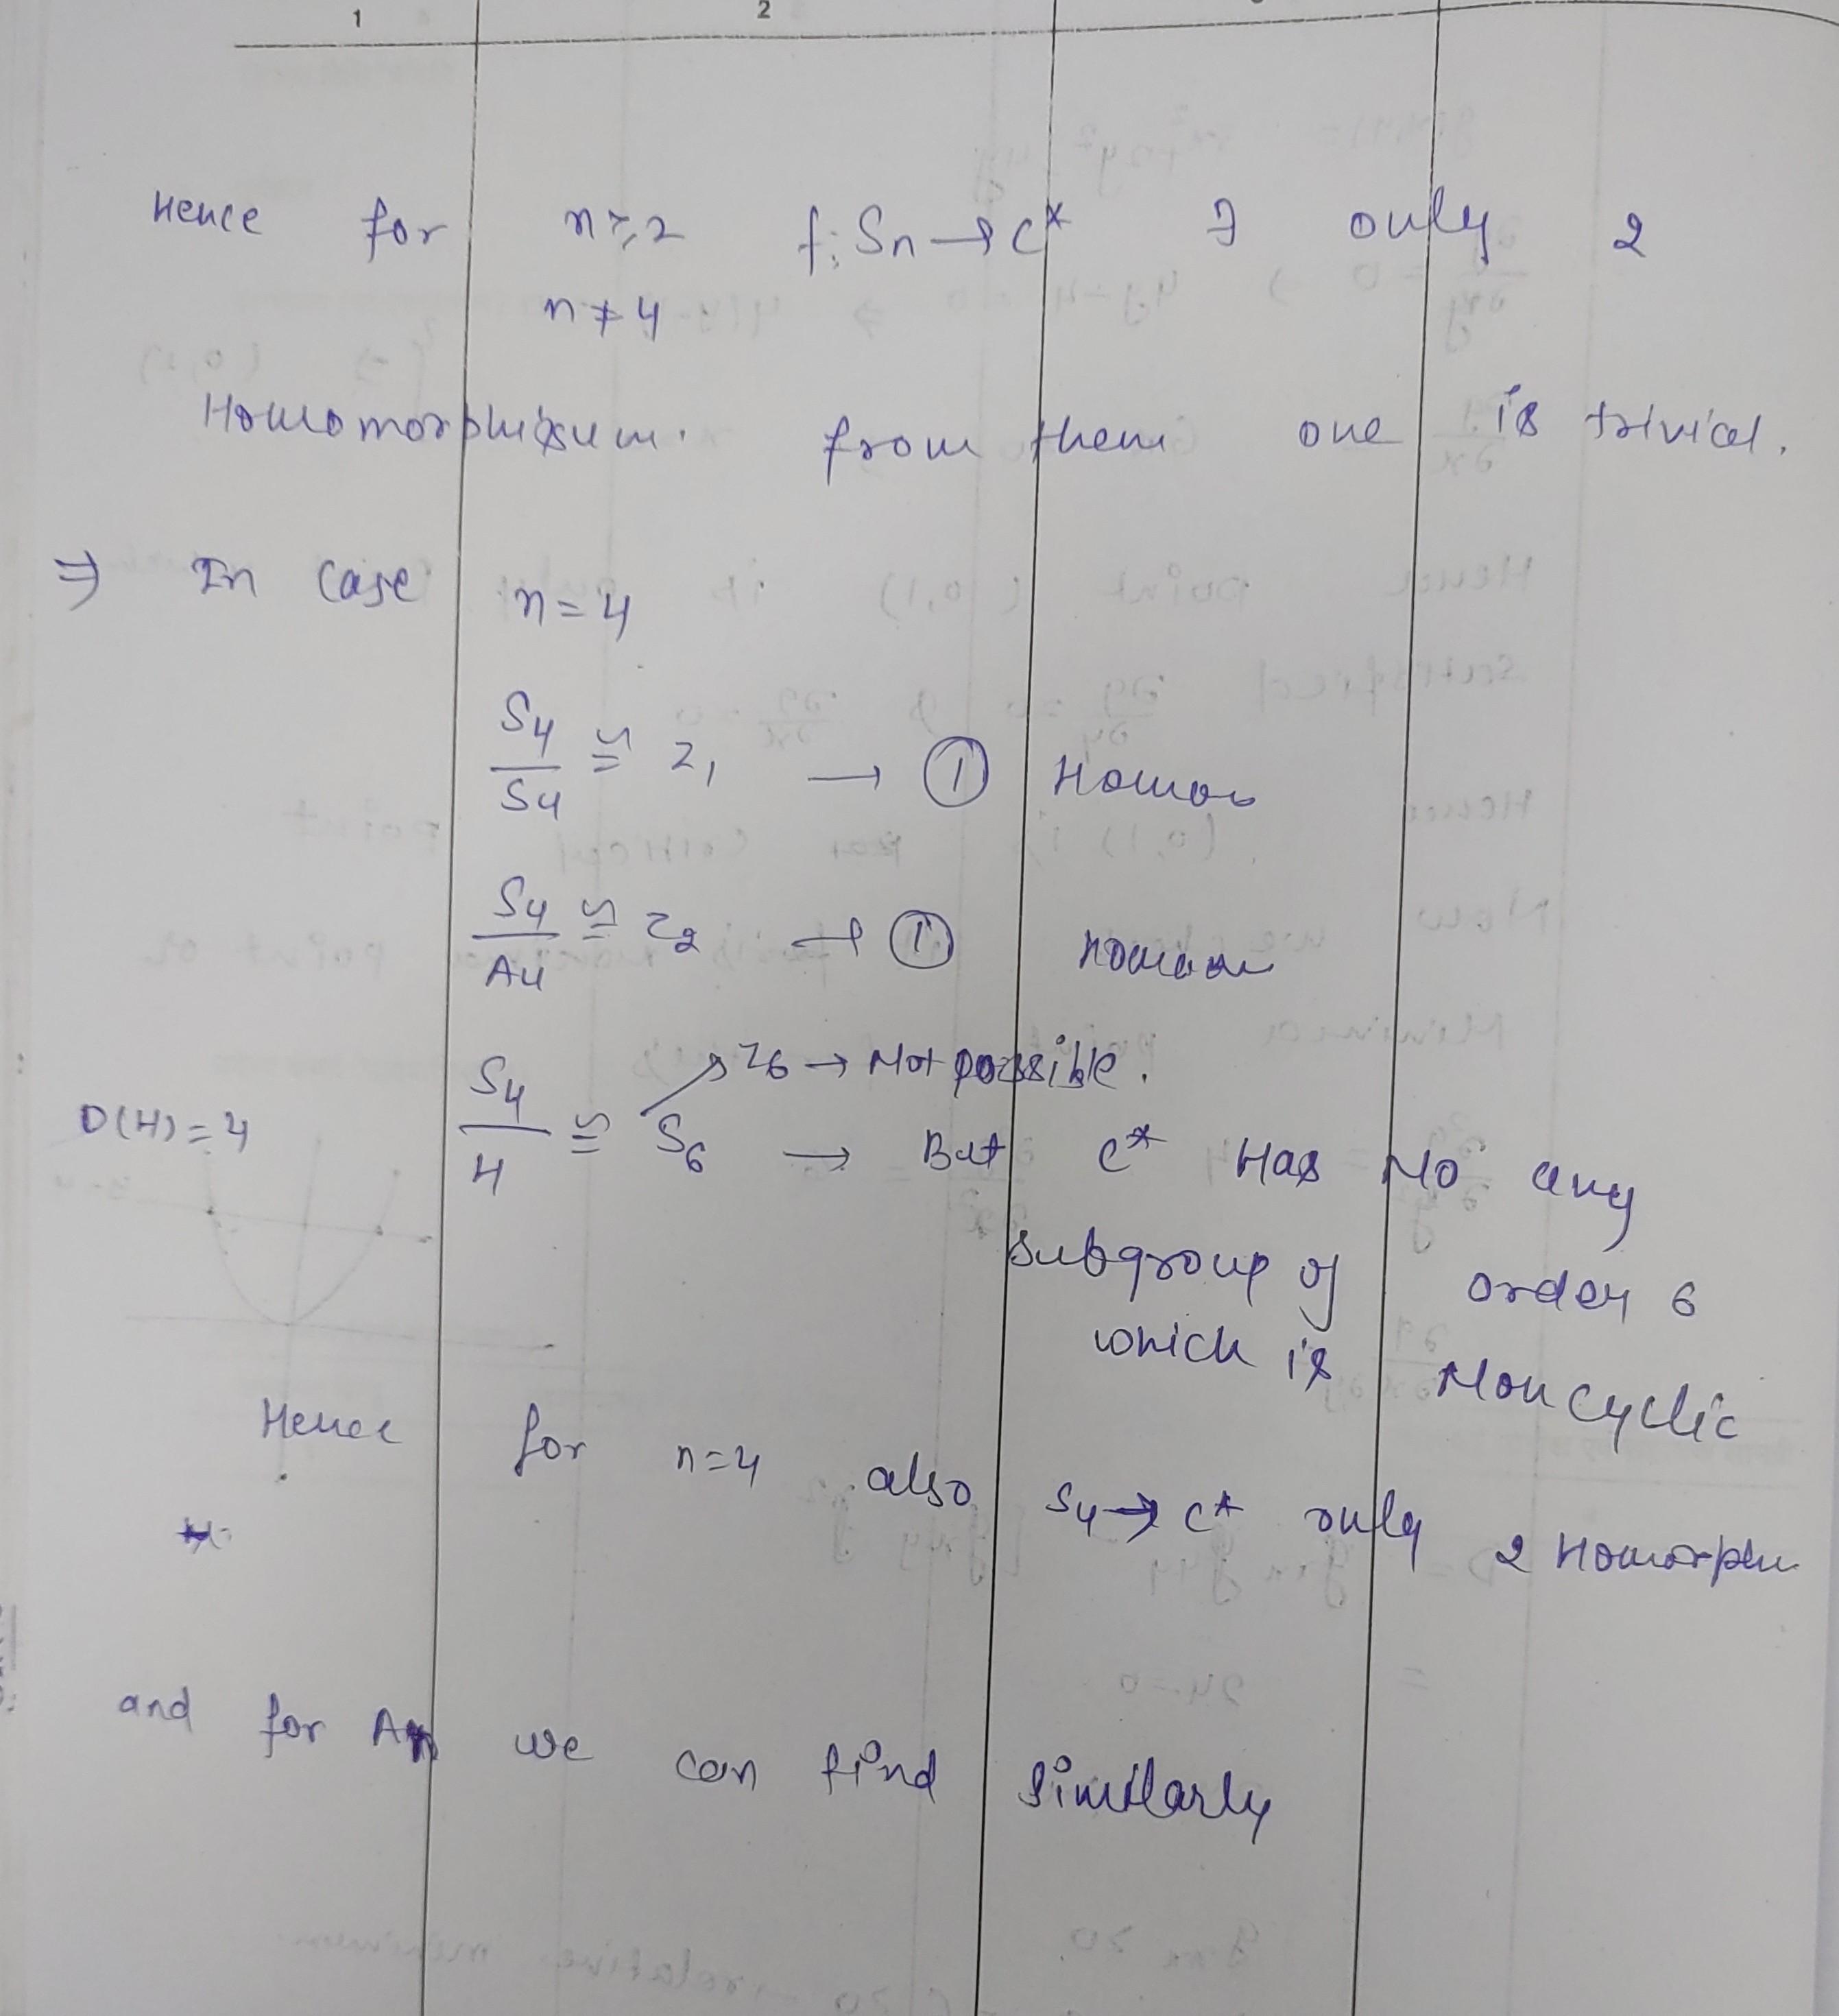 1 2
Hence for n≥2 f: Sn → C* ∃ only 2
n≠4
Homomorphisum. from them one is trivial.
⇒ In case n=4
S4/S4 ≅ Z1 → ① Homom
S4/A4 ≅ Z2 → ① Homom
Z6 → Not possible.
O(H)=4 S4/H ≅ S6 → But C* Has No any
subgroup of order 6
which is Non cyclic
Hence for n=4 also S4 → C* only 2 Homorphm
and for An we can find similarly